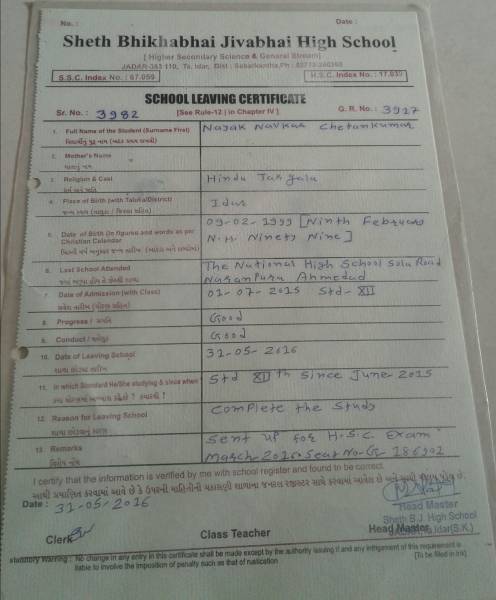 No. :
Date :
Sheth Bhikhabhai Jivabhai High School
[ Higher Secondary Science & General Stream]
JADAR-383 110, Ta. Idar, Dist : Sabarkantha, Ph :
S.S.C. Index No. : 67.059
H.S.C. Index No. : 17.035
SCHOOL LEAVING CERTIFICATE
Sr. No. : 3982
[See Rule-12 / in Chapter IV ]
G. R. No. : 3927
1. Full Name of the Student (Surname First) Nayak Navkar Chetankumar
2. Mother's Name
3. Religion & Cast Hindu Targala
4. Place of Birth (with Taluka/District) Idar
09-02-1999 [Ninth February
5. Date of Birth (in figures and words as per Christian Calendar N.H. Ninety Nine]
6. Last School Attended The National High School Sola Road
Naranpura Ahmedabad
7. Date of Admission (with Class) 01-07-2015 Std-XII
8. Progress / પ્રગતિ Good
9. Conduct / વર્તણૂક Good
10. Date of Leaving School 31-05-2016
11. In which Standard He/She studying & since when Std XIIth Since June 2015
12. Reason for Leaving School Complete the Study
13. Remarks Sent up for H.S.C. Exam
March 2016. Seat No-G 186902
I certify that the information is verified by me with school register and found to be correct.
Date : 31-05-2016
Head Master
Sheth B.J. High School
Clerk
Class Teacher
Head Master
Idar(S.K.)
statutory Warning : No change in any entry in this certificate shall be made except by the authority issuing it and any infringement of this requirement is
liable to involve the imposition of penalty such as that of rustication
[To be filled in ink]